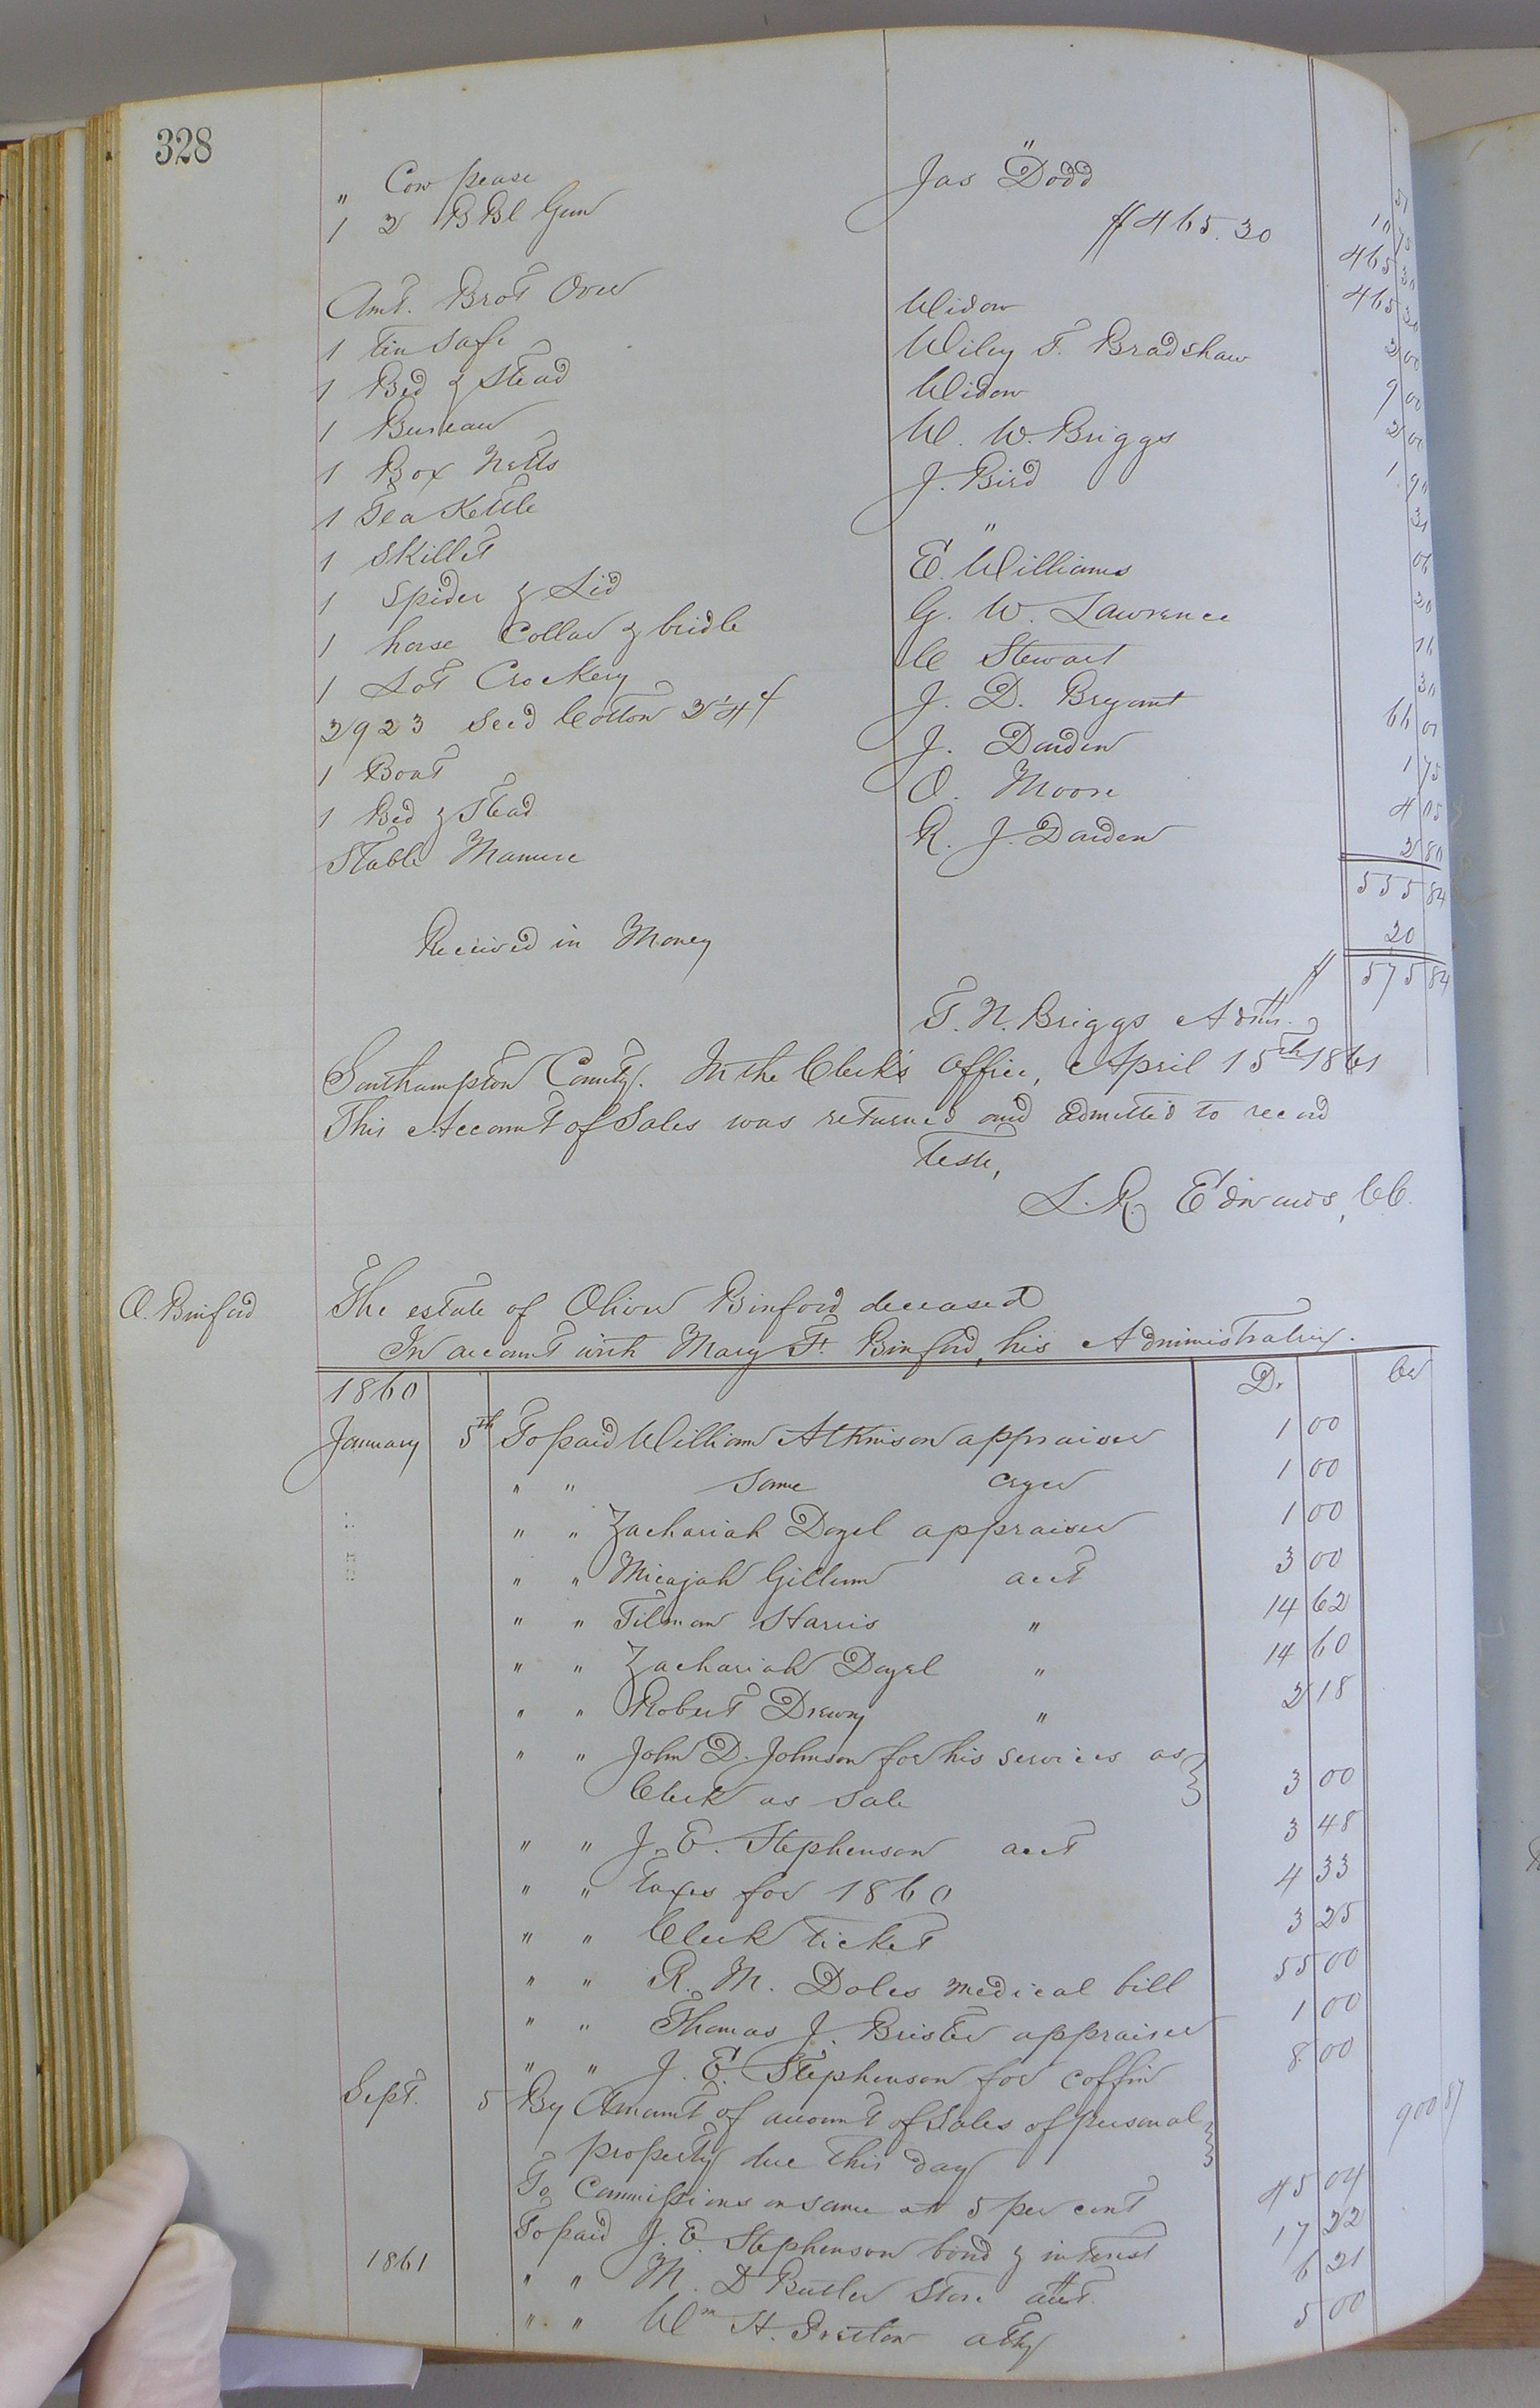 328
" Cow pease " 51
1 2 B Bl Gun Jas Dodd 10 75
$465.30 465 30
Amt. Brot Over 465 30
1 tin Safe Widow 2 00
1 Bed & Stead Wiley T. Bradshaw 9 00
1 Bureau Widow 2 00
1 Box Netts W. W. Briggs 1 90
1 Tea Kettle J. Bird 31
1 Skillet " 06
1 Spider & Lid E. Williams 20
1 horse Collar & bridle G. W. Lawrence 16
1 Lot Crockery C Stewart 30
2923 Seed Cotton J. D. Bryant 66 01
1 Boat J. Darden 1 75
1 Bed & Stead O. Moore 4 05
Stable Manure R. J. Darden 2 80
555 84
Received in Money 20
$ 575 84
T. N. Briggs Admr.
Southampton County. In the Clerk's Office, April 15th 1861
This Account of Sales was returned and admitted to record
Teste,
L. R. Edwards, CC.
O. Binford
The estate of Oliver Binford deceased
In account with Mary F. Binford, his Administratrix.
1860 Dr Cr
January 5th To paid William Atkinson appraiser 1 00
" " Same cryer 1 00
" " Zachariah Doyel appraiser 1 00
" " Micajah Gillum acct 3 00
" " Tilman Harris " 14 62
" " Zachariah Doyel " 14 60
" " Robert Drewry " 2 18
" " John D. Johnson for his services as
Clerk as Sale 3 00
" " J. E. Stephenson acct 3 48
" " Taxes for 1860 4 33
" " Clerk ticket 3 25
" " R. M. Doles medical bill 55 00
" " Thomas J. Brister appraiser 1 00
" " J. E. Stephenson for coffin 8 00
Sept. 5 By Amount of account of Sales of personal
property due this day 900 87
To Commissions on same at 5 per cent 45 04
To paid J. E. Stephenson bond & interest 17 22
1861 " " M. D Butler Store acct. 6 21
" " Wm H. atty 5 00